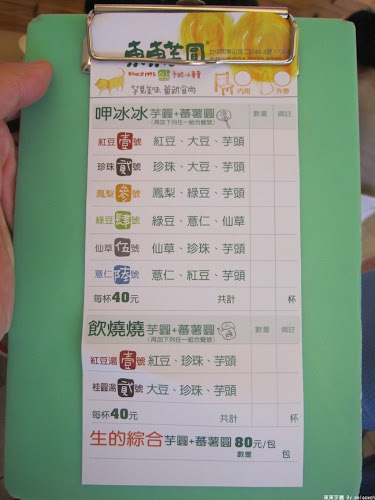 東東芋圓
內用
外帶
呷冰冰 芋圓+蕃薯圓 數量 備註
(再加下列任一組合餐號)
紅豆壹號 紅豆、大豆、芋頭
珍珠貳號 珍珠、大豆、芋頭
鳳梨參號 鳳梨、綠豆、芋頭
綠豆肆號 綠豆、薏仁、仙草
仙草伍號 仙草、珍珠、芋頭
薏仁陸號 薏仁、紅豆、芋頭
每杯40元 共計 杯
飲燒燒 芋圓+蕃薯圓 數量 備註
(再加下列任一組合餐號)
紅豆湯壹號 紅豆、珍珠、芋頭
桂圓湯貳號 大豆、珍珠、芋頭
每杯40元 共計 杯
生的綜合 芋圓+蕃薯圓 80元/包
數量 包